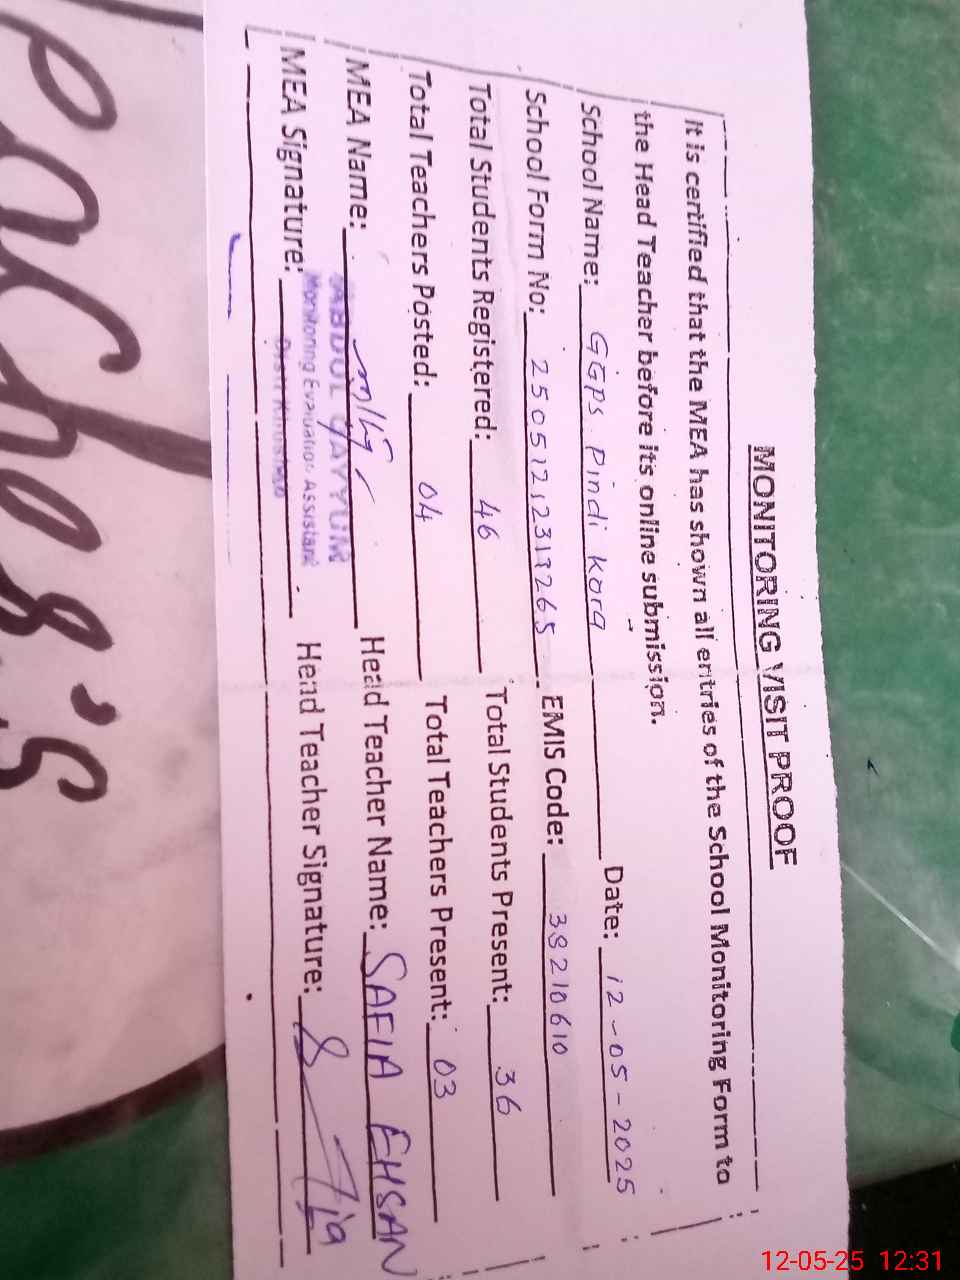 MONITORING VISIT PROOF
It is certified that the MEA has shown all entries of the School Monitoring Form to
the Head Teacher before its online submission.
School Name: GGPS Pindi Kora Date: 12-05-2025
School Form No: EMIS Code: 39210610
Total Students Registered: 46 Total Students Present: 36
Total Teachers Posted: 04 Total Teachers Present: 03
MEA Name: ABDUL QAYYUM Head Teacher Name: SAFIA EHSAN
Monitoring Evaluation Assistant
MEA Signature: Distt Khushab Head Teacher Signature: Safia
Teacher's
12-05-25 12:31